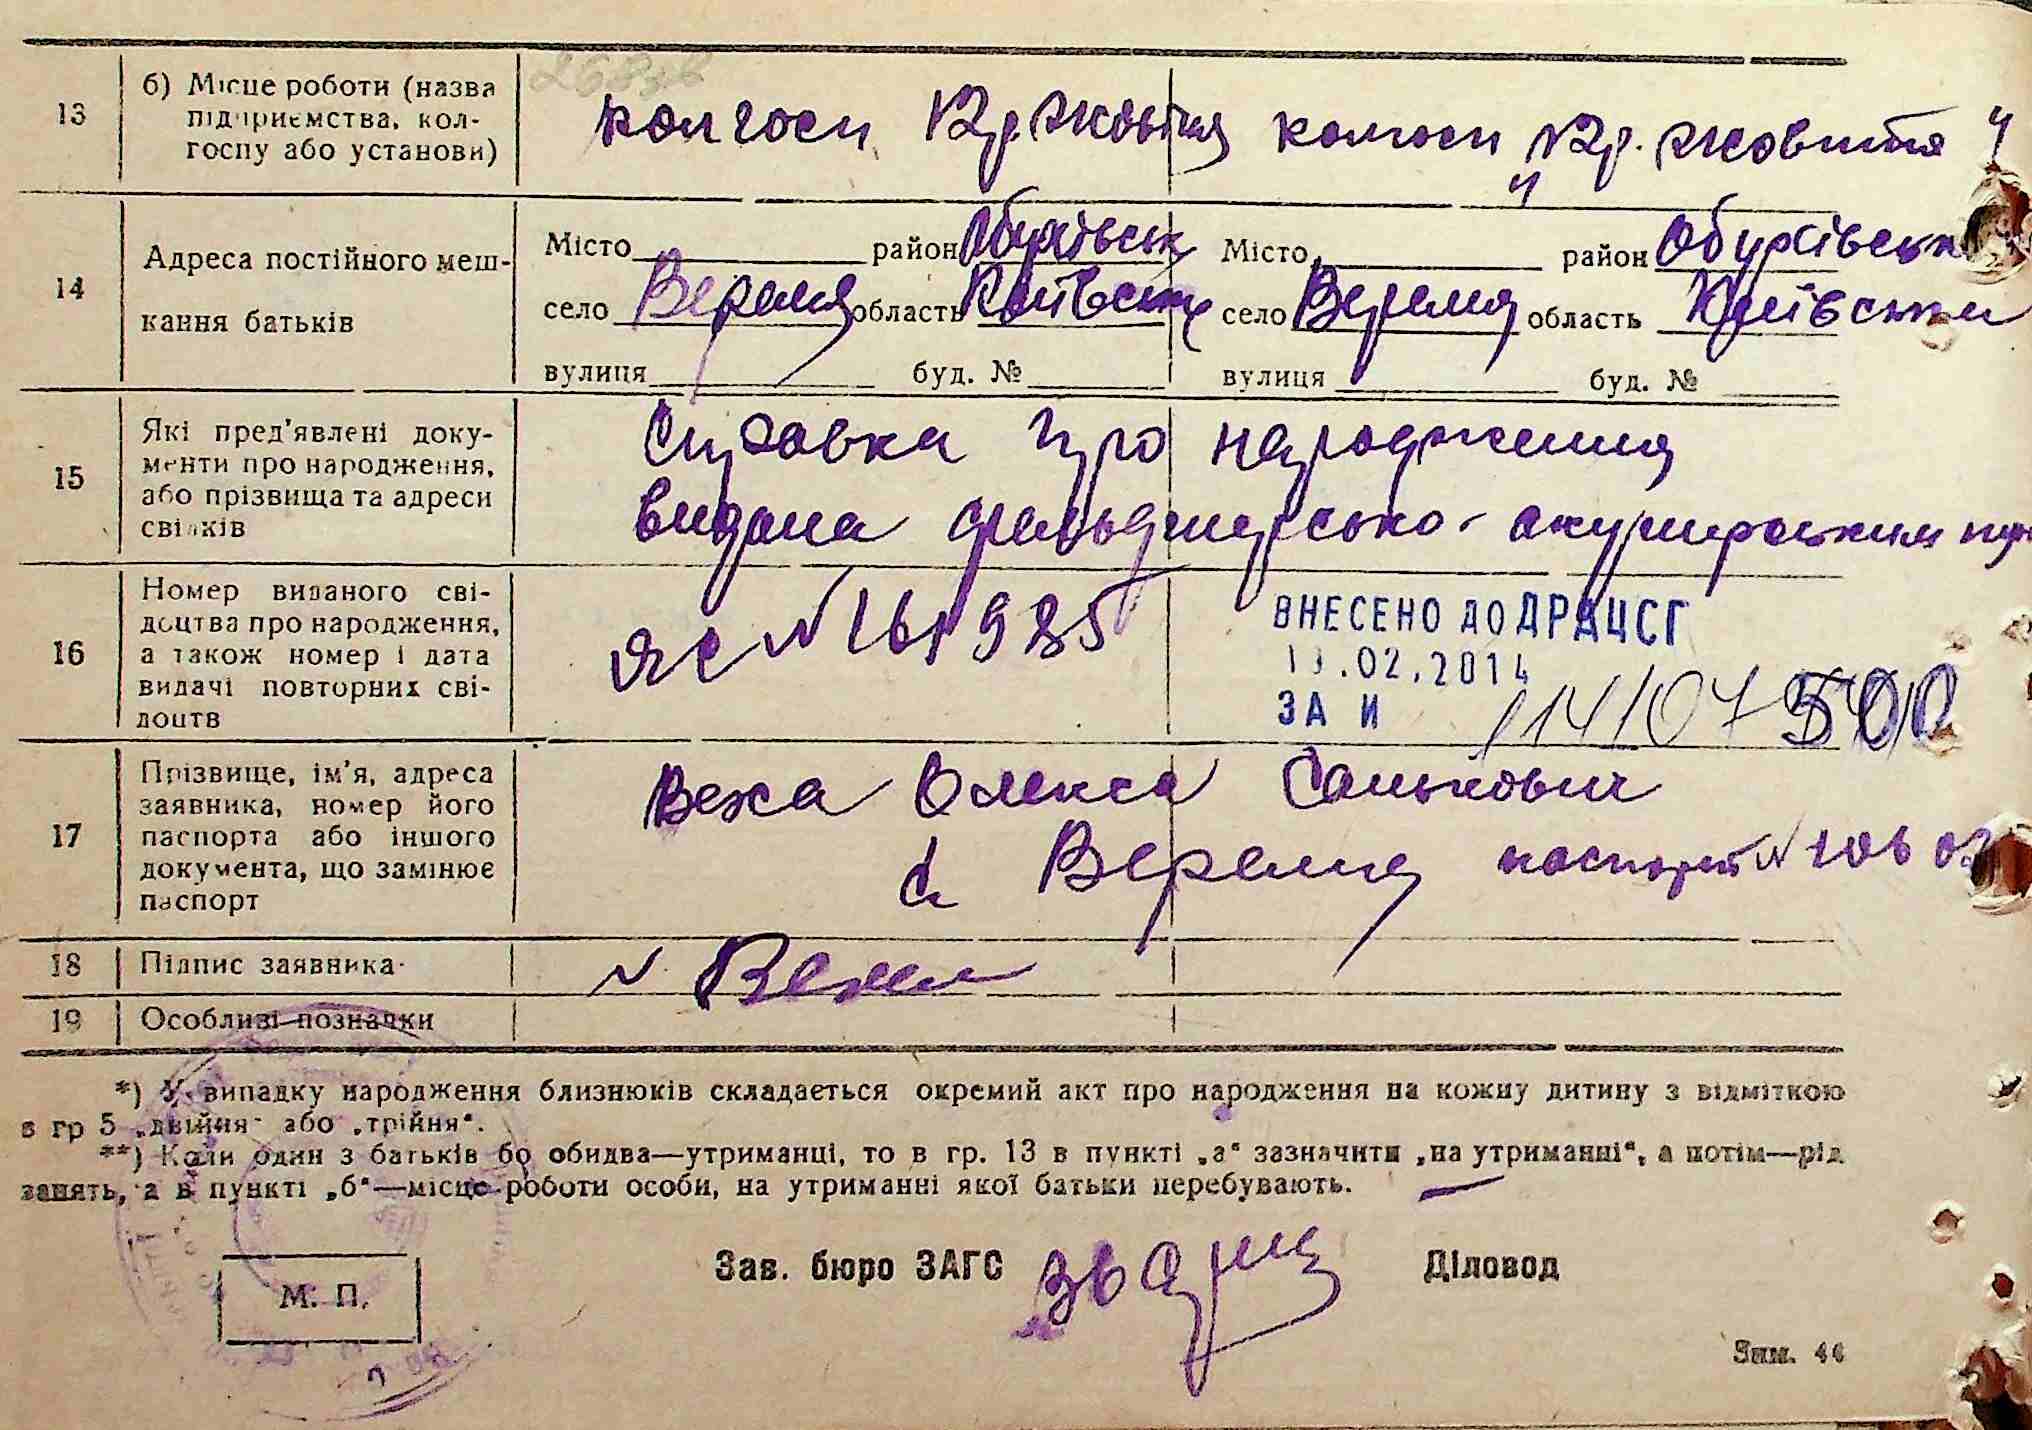 13
б) Місце роботи (назва
підприємства, кол-
госпу або установи)
колгосп Кр. Жовтня колгосп Кр. Жовтня
14
Адреса постійного меш-
кання батьків
Місто район Обухівськ
село Веремя область Київськ
вулиця буд. №
Місто район Обухівськ
село Веремя область Київськ
вулиця буд. №
15
Які пред'явлені доку-
менти про народження,
або прізвища та адреси
свідків
Справка про народження
видана фельдшерсько-акушерським
16
Номер виданого сві-
доцтва про народження,
а також номер і дата
видачі повторних сві-
доцтв
ЯС №161985
ВНЕСЕНО ДО ДРАЦСГ
.02.2014
ЗА И
17
Прізвище, ім'я, адреса
заявника, номер його
паспорта або іншого
документа, що замінює
паспорт
Вежа Олекса
с Веремя паспорт №
18
Підпис заявника
Вежа
19
Особливі позначки
*) У випадку народження близнюків складається окремий акт про народження на кожну дитину з відміткою
в гр 5 „двійня" або „трійня".
**) Коли один з батьків бо обидва—утриманці, то в гр. 13 в пункті „а" зазначити „на утриманні", а потім—рід
занять, а в пункті „б"—місце роботи особи, на утриманні якої батьки перебувають.
Зав. бюро ЗАГС
Діловод
М. П.
Зам. 44